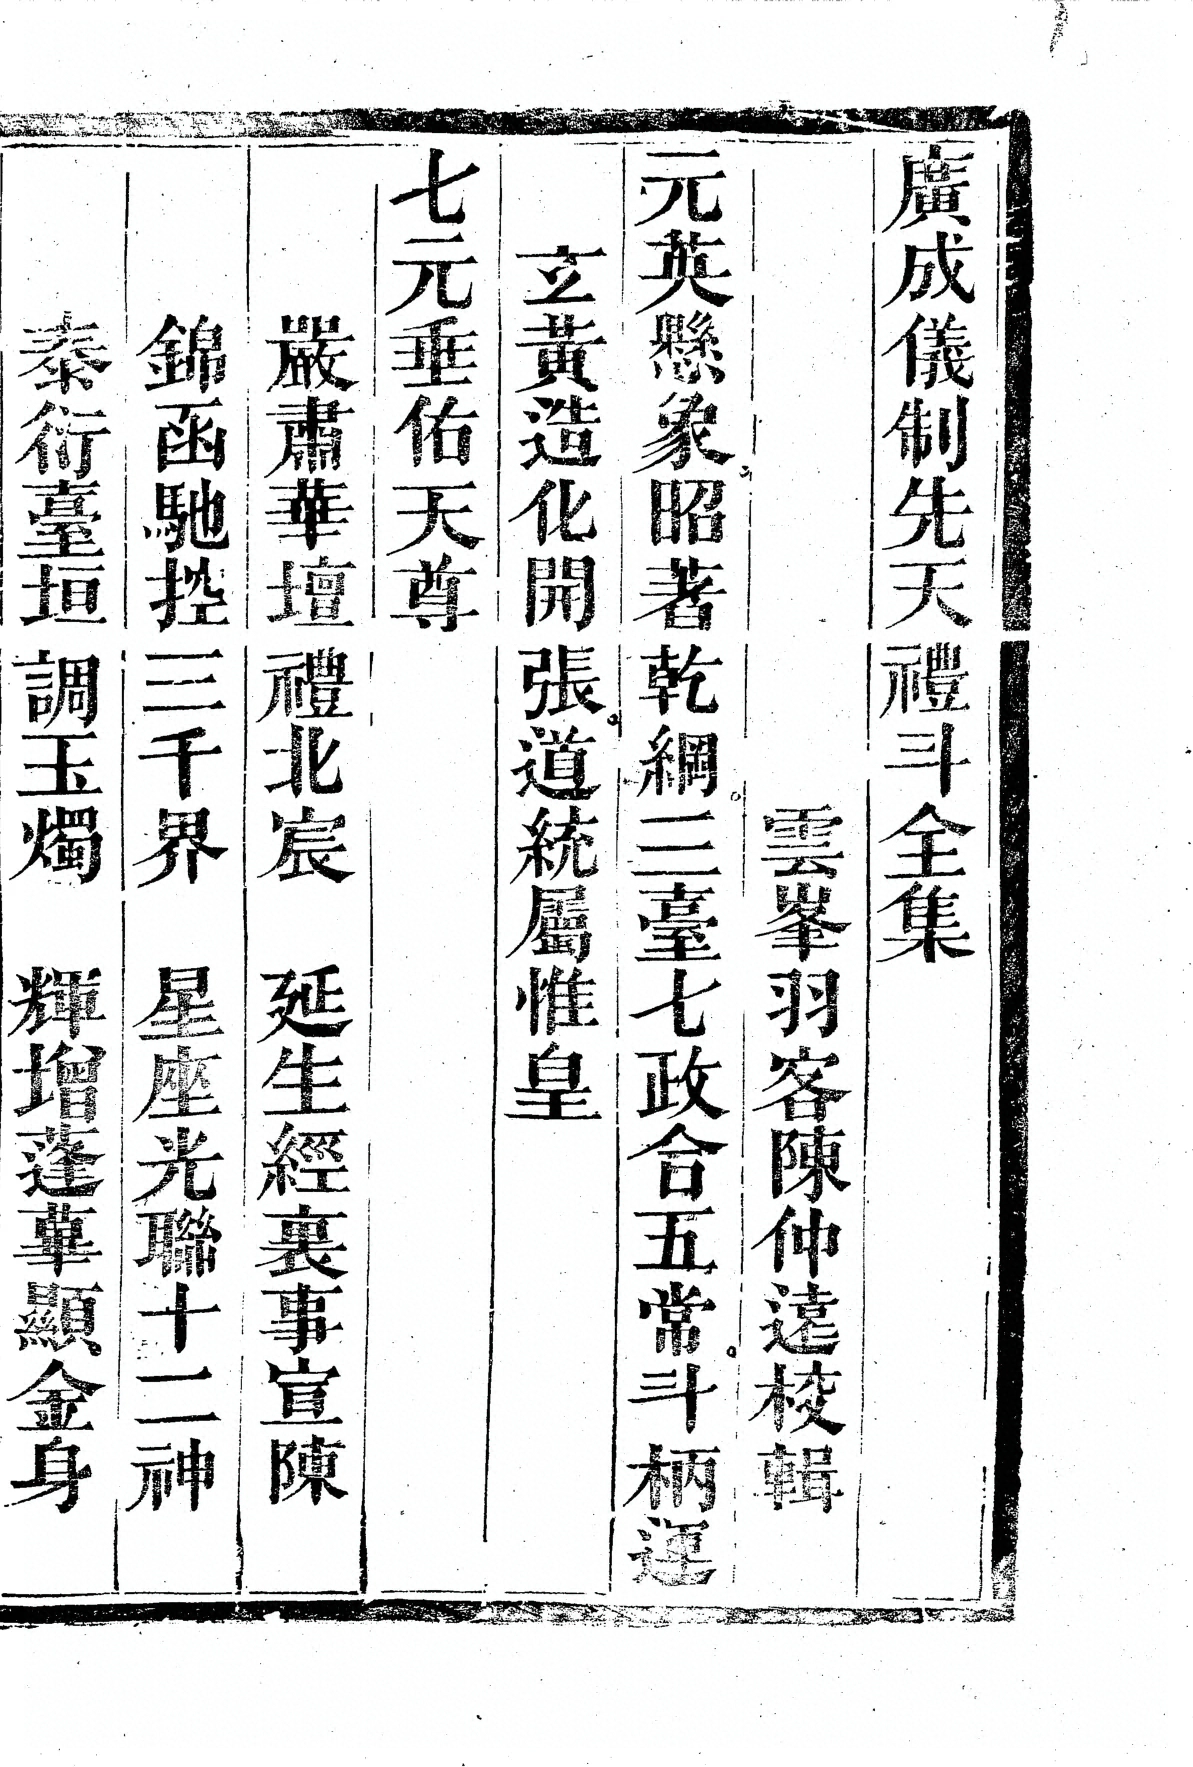 廣成儀制先天禮斗全集
雲峯羽客陳仲遠校輯
元英懸象昭著乾綱。三臺七政合五常。斗柄運
立黃造化開張。道統屬惟皇
七元垂佑天尊
嚴肅華壇禮北宸　延生經裏事宣陳
錦函馳控三千界　星座光聯十二神
泰衍臺垣調玉燭　輝增蓬蓽顯金身